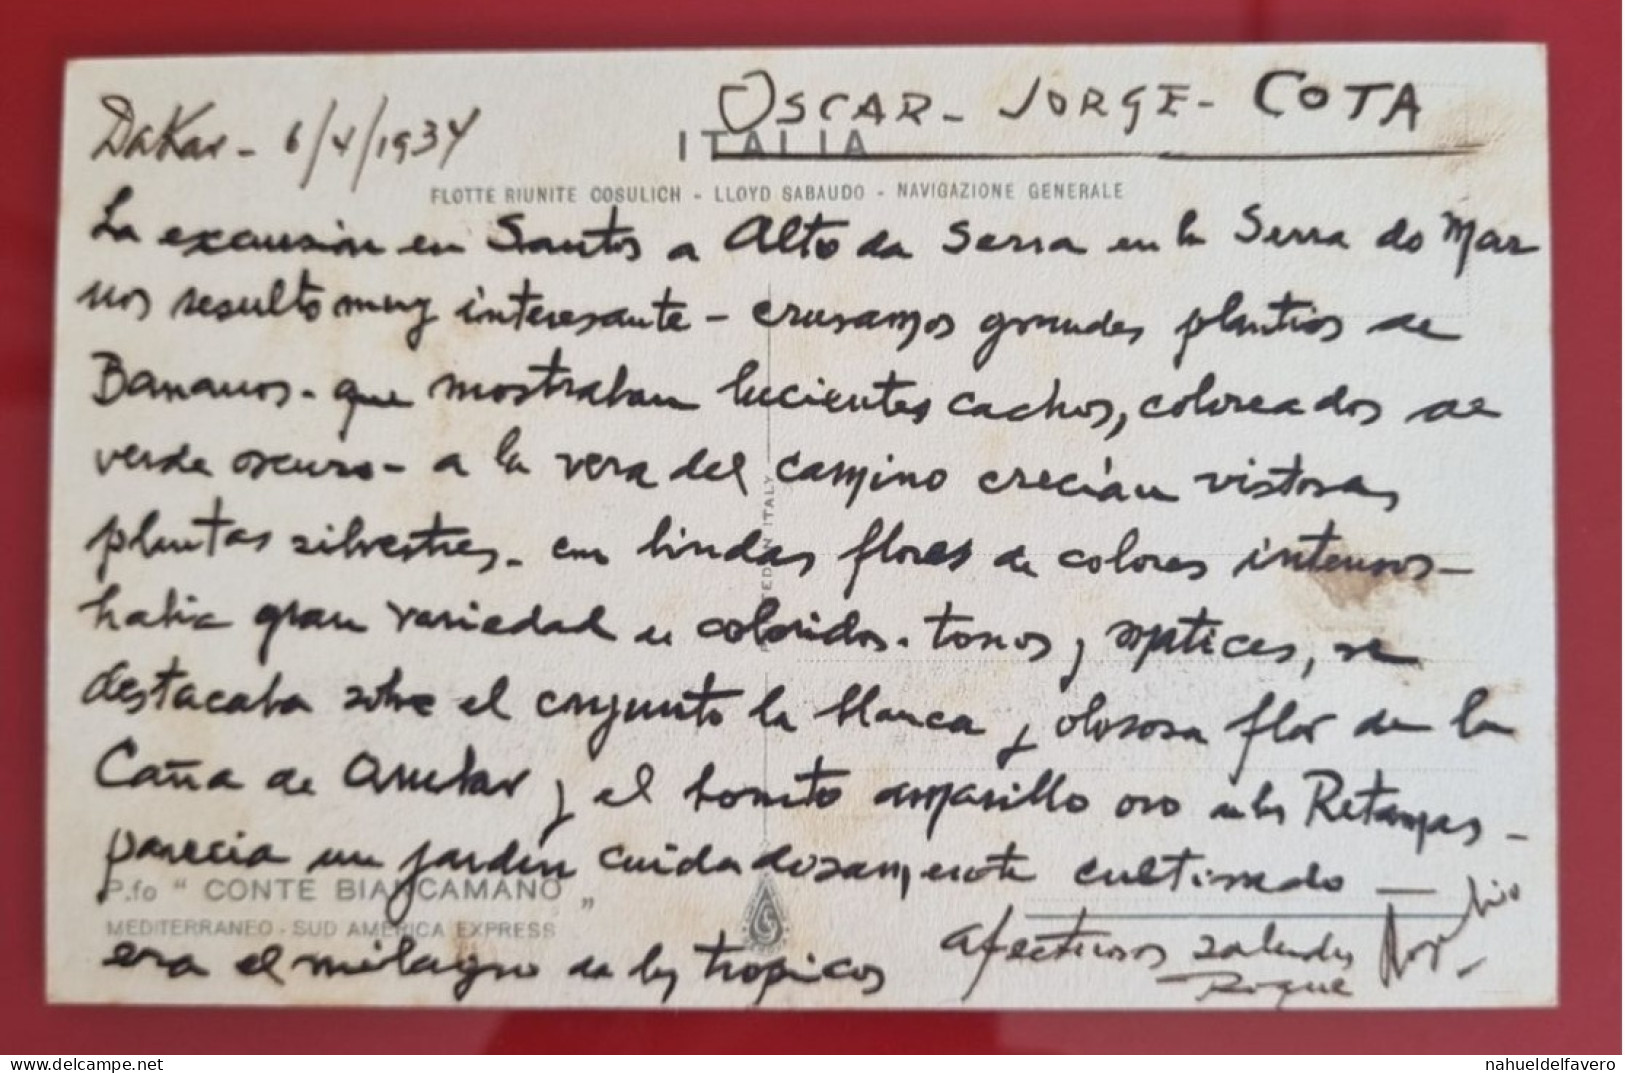 OSCAR - JORGE - COTA
Dakar - 6/4/1934
ITALIA
FLOTTE RIUNITE COSULICH - LLOYD SABAUDO - NAVIGAZIONE GENERALE
La excursión en Santos a Alto da Serra en la Serra do Mar
nos resulto muy interesante - crusamos grandes plantios de
Bananos - que mostraban lucientes cachos, coloreados de
verde oscuro - a la vera del camino crecían vistosas
plantas silvestres - con lindas flores de colores intensos -
habia gran variedad de coloridos - tonos y matices, se
destacaba sobre el conjunto la blanca y olorosa flor de la
Caña de Ambar y el bonito amarillo oro de las Retamas -
parecia un jardín cuidadosamente cultivado -
P.fo " CONTE BIANCAMANO "
MEDITERRANEO - SUD AMERICA EXPRESS
era el milagro de los tropicos
afectuosos saludos
Roque
ED IN ITALY
delcampe.net
nahueldelfavero